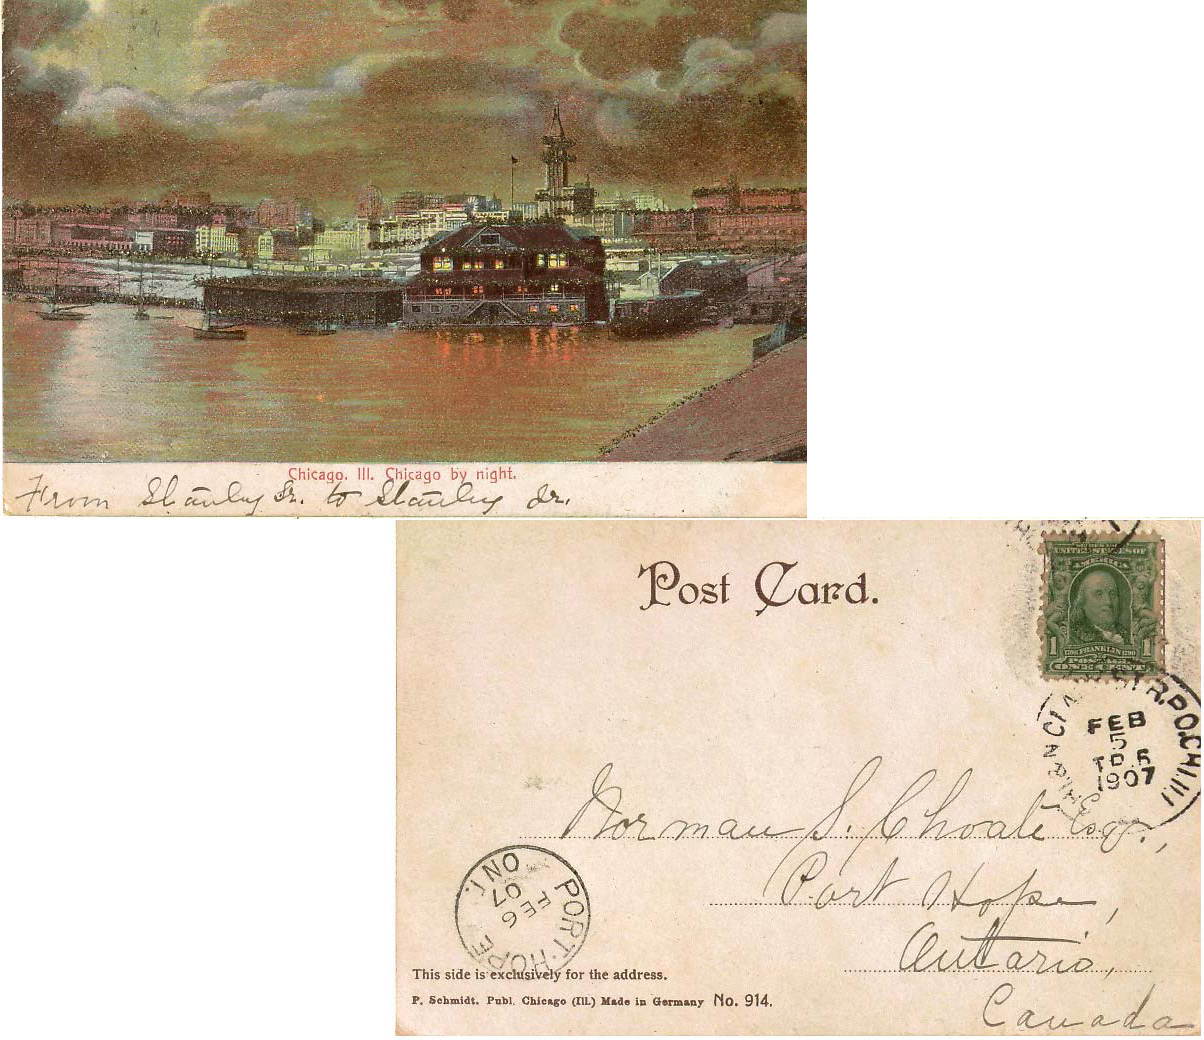 Chicago. Ill. Chicago by night.
From Stanley Sr. to Stanley Jr.
Post Card.
UNITED STATES OF
AMERICA
1 FRANKLIN 1
POSTAGE
ONE CENT
R.P.O. CHI. ILL
FEB
5
1907
Norman S. Choate Esqr.,
Port Hope,
Ontario,
Canada
PORT-HOPE ONT.
FE 6
07
This side is exclusively for the address.
P. Schmidt. Publ. Chicago (Ill.) Made in Germany No. 914.